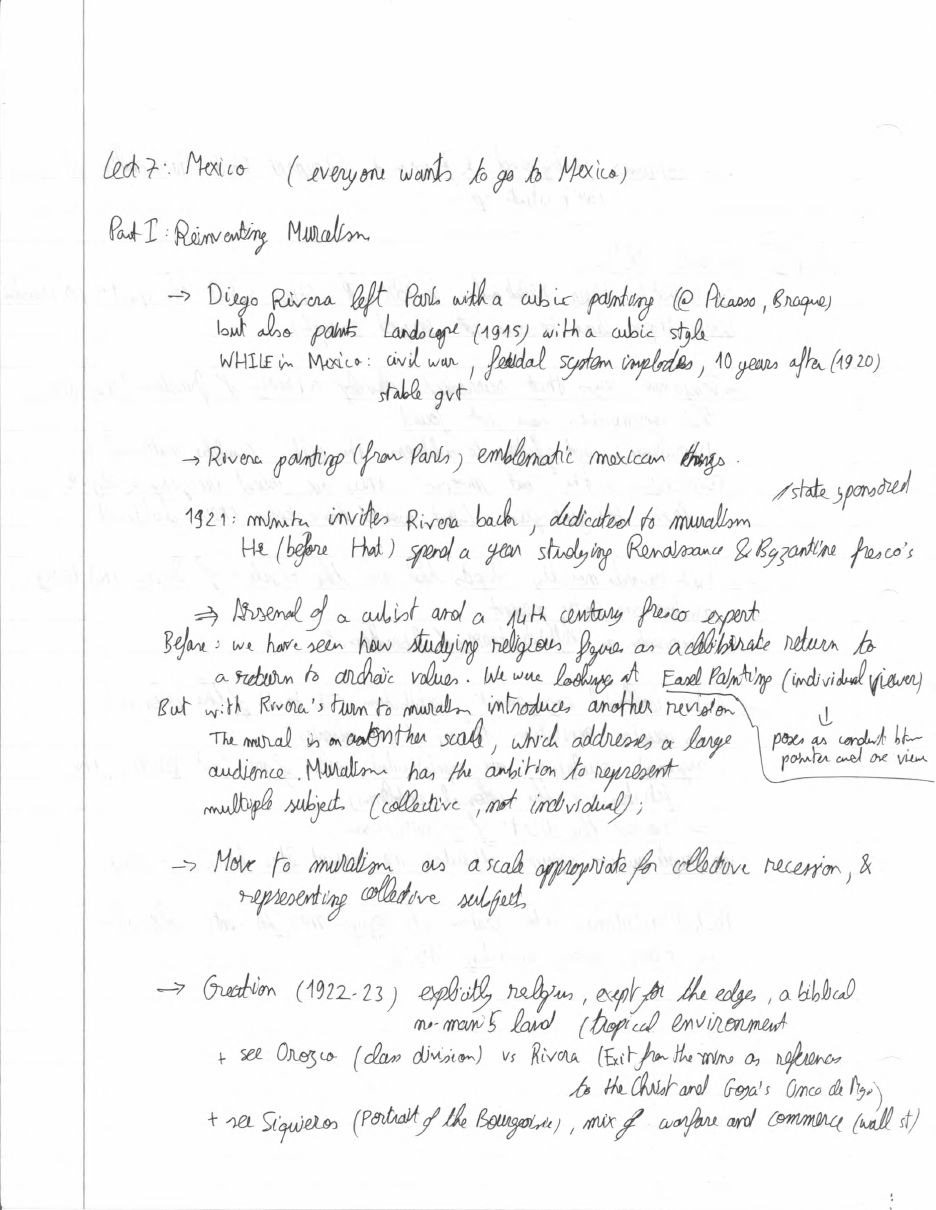 Lect 7: Mexico (everyone wants to go to Mexico)
Part I: Reinventing Muralism
→ Diego Rivera left Paris with a cubic painting (@ Picasso, Braque)
but also paints Landscape (1915) with a cubic style
WHILE in Mexico: civil war, feudal system implodes, 10 years after (1920)
stable gvt
→ Rivera painting (from Paris) emblematic mexican things.
/state sponsored
1921: minister invites Rivera back, dedicated to muralism
He (before that) spend a year studying Renaissance & Byzantine fresco's
⇒ Arsenal of a cubist and a 14th century fresco expert
Before: we have seen how studying religious figures as a delibirate return to
a return to archaic values. We were looking at Easel Painting (individual viewer)
But with Rivera's turn to muralism introduces another revision
↓
The mural is on another scale, which addresses a large
poses as conduit btw
painter and one view
audience. Muralism has the ambition to represent
multiple subjects (collective, not individual);
→ Move to muralism as a scale appropriate for collective recession, &
representing collective subjects
→ Creation (1922-23) explicitly religius, exept for the edges, a biblical
no-man's land (tropical environment
+ see Orozco (class division) vs Rivera (Exit from the mine as reference
to the Christ and Goya's Cinco de )
+ see Siquieros (Portrait of the Bourgeoisie), mix of warfare and commerce (wall st)